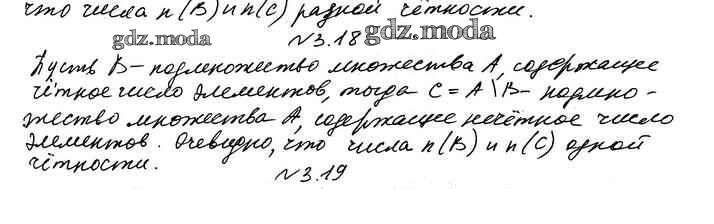 что числа n(B) и n(C) разной чётности.
gdz.moda
N3.18
gdz.moda
Пусть B - подмножество множества A, содержащее
чётное число элементов, тогда C = A \ B - подмно-
жество множества A, содержащее нечётное число
элементов. Очевидно, что числа n(B) и n(C) одной
чётности.
N3.19